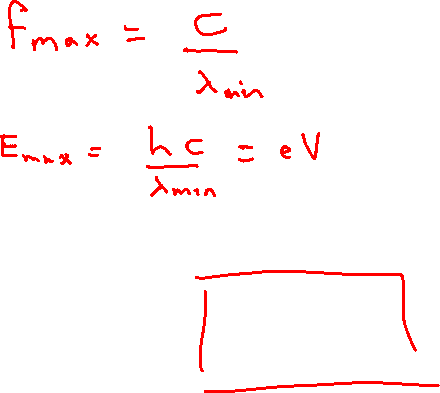 fmax = c / λmin
Emax = hc / λmin = eV